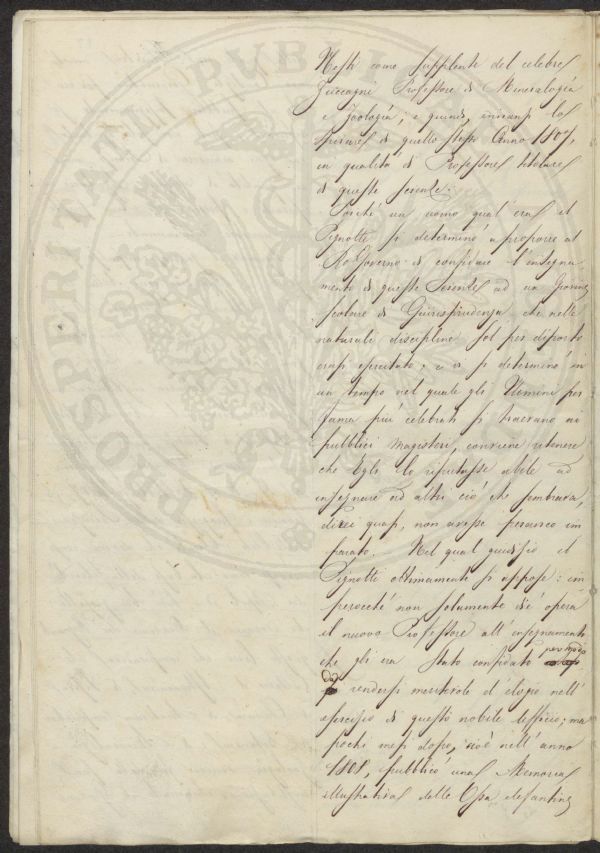 Nesti come supplente del celebre
Zuccagni Professore di Mineralogia
e Zoologia; e quindi, innanzi lo
spirare di quello stesso Anno 1807,
in qualità di Professore titolare
di queste scienze.
Perchè un uomo qual'era il
Pignotti si determinò a proporre al
R.o Governo di confidare l'insegna
mento di queste scienze ad un Giovine
scolare di Giurisprudenza che nelle
naturali discipline sol per diporto
erasi esercitato; e vi si determinò in
un tempo nel quale gli Uomini per
fama più celebrati si traevano ai
pubblici magisteri, conviene ritenere
che Egli lo riputasse abile ad
insegnare ad altri ciò che sembrava,
direi quasi, non avesse peranco im
parato. Nel qual giudizio il
Pignotti ottimamente si appose: im
perocchè non solamente diè opera
il nuovo Professore all'insegnamento
che gli era stato confidato per modo
da rendersi meritevole d'elogio nell'
esercizio di questo nobile Ufficio; ma
pochi mesi dopo, cioè nell'anno
1808, pubblicò una Memoria
illustrativa delle Ossa elefantine
PERITATI PUBLICA